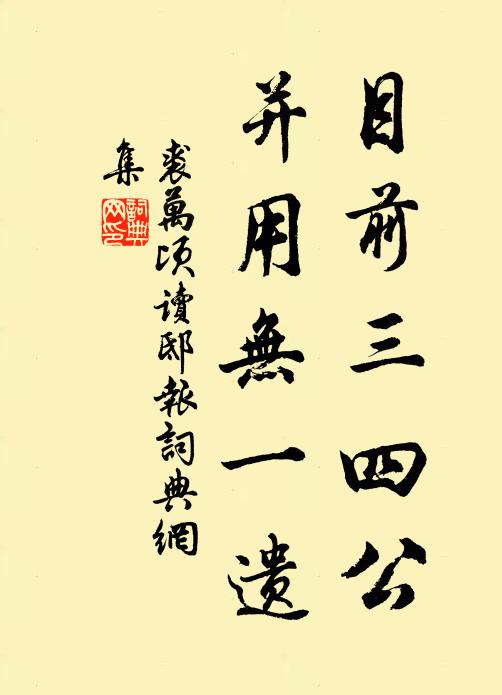 目前三四公
并用無一遗
裘萬顷讀邸報詞典網
集
詞典
网印